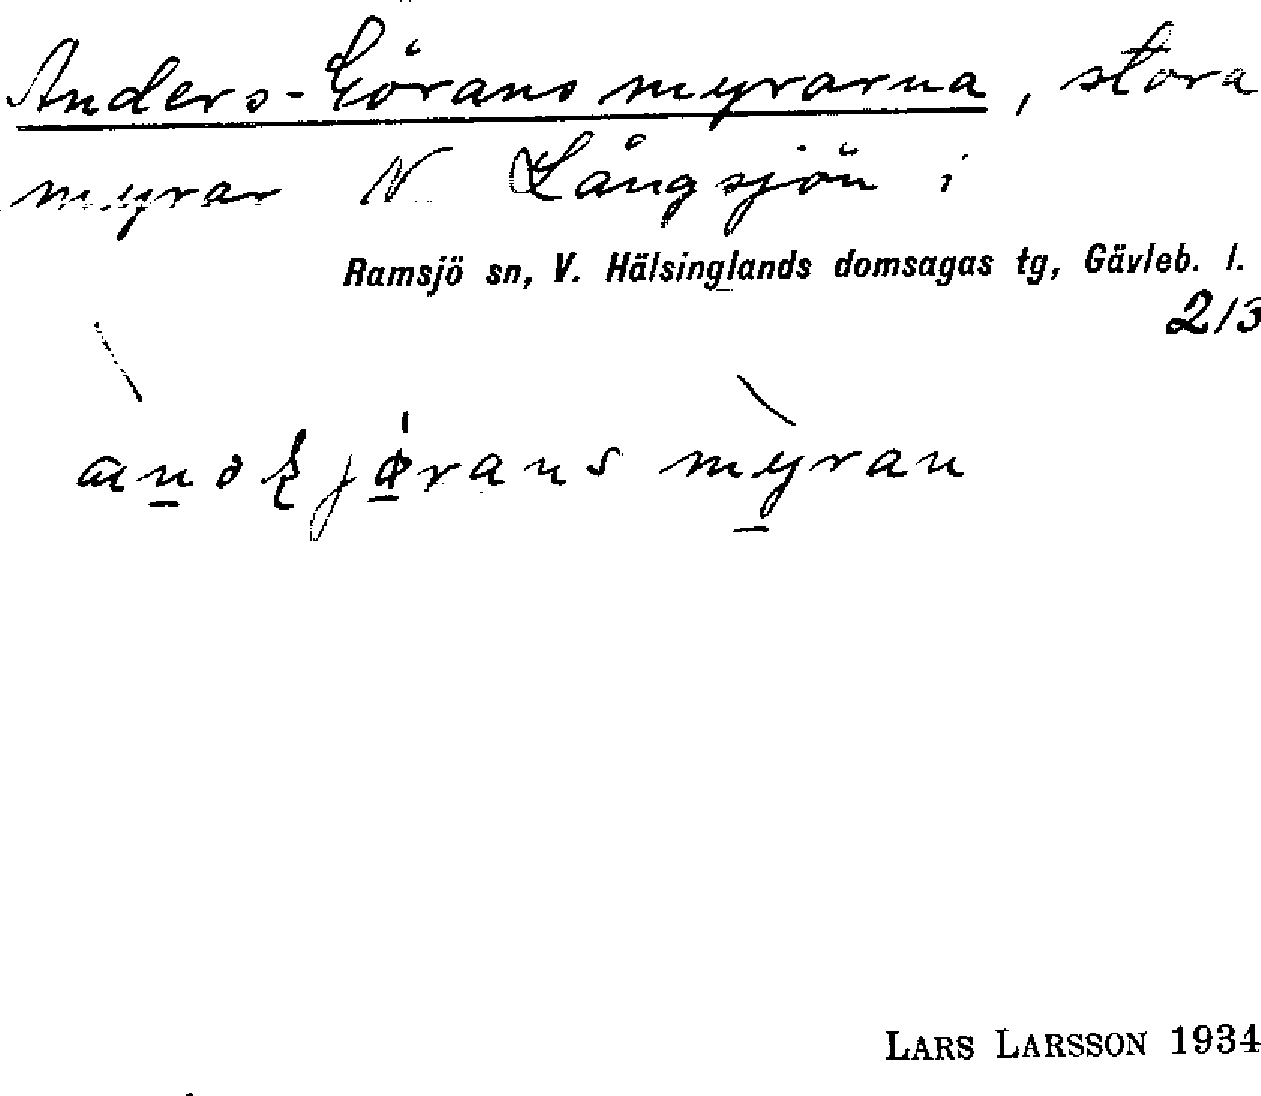 Anders-Görans myrarna, stora
myrar N Långsjön i
Ramsjö sn, V. Hälsinglands domsagas tg, Gävleb. l.
213
myran
LARS LARSSON 1934